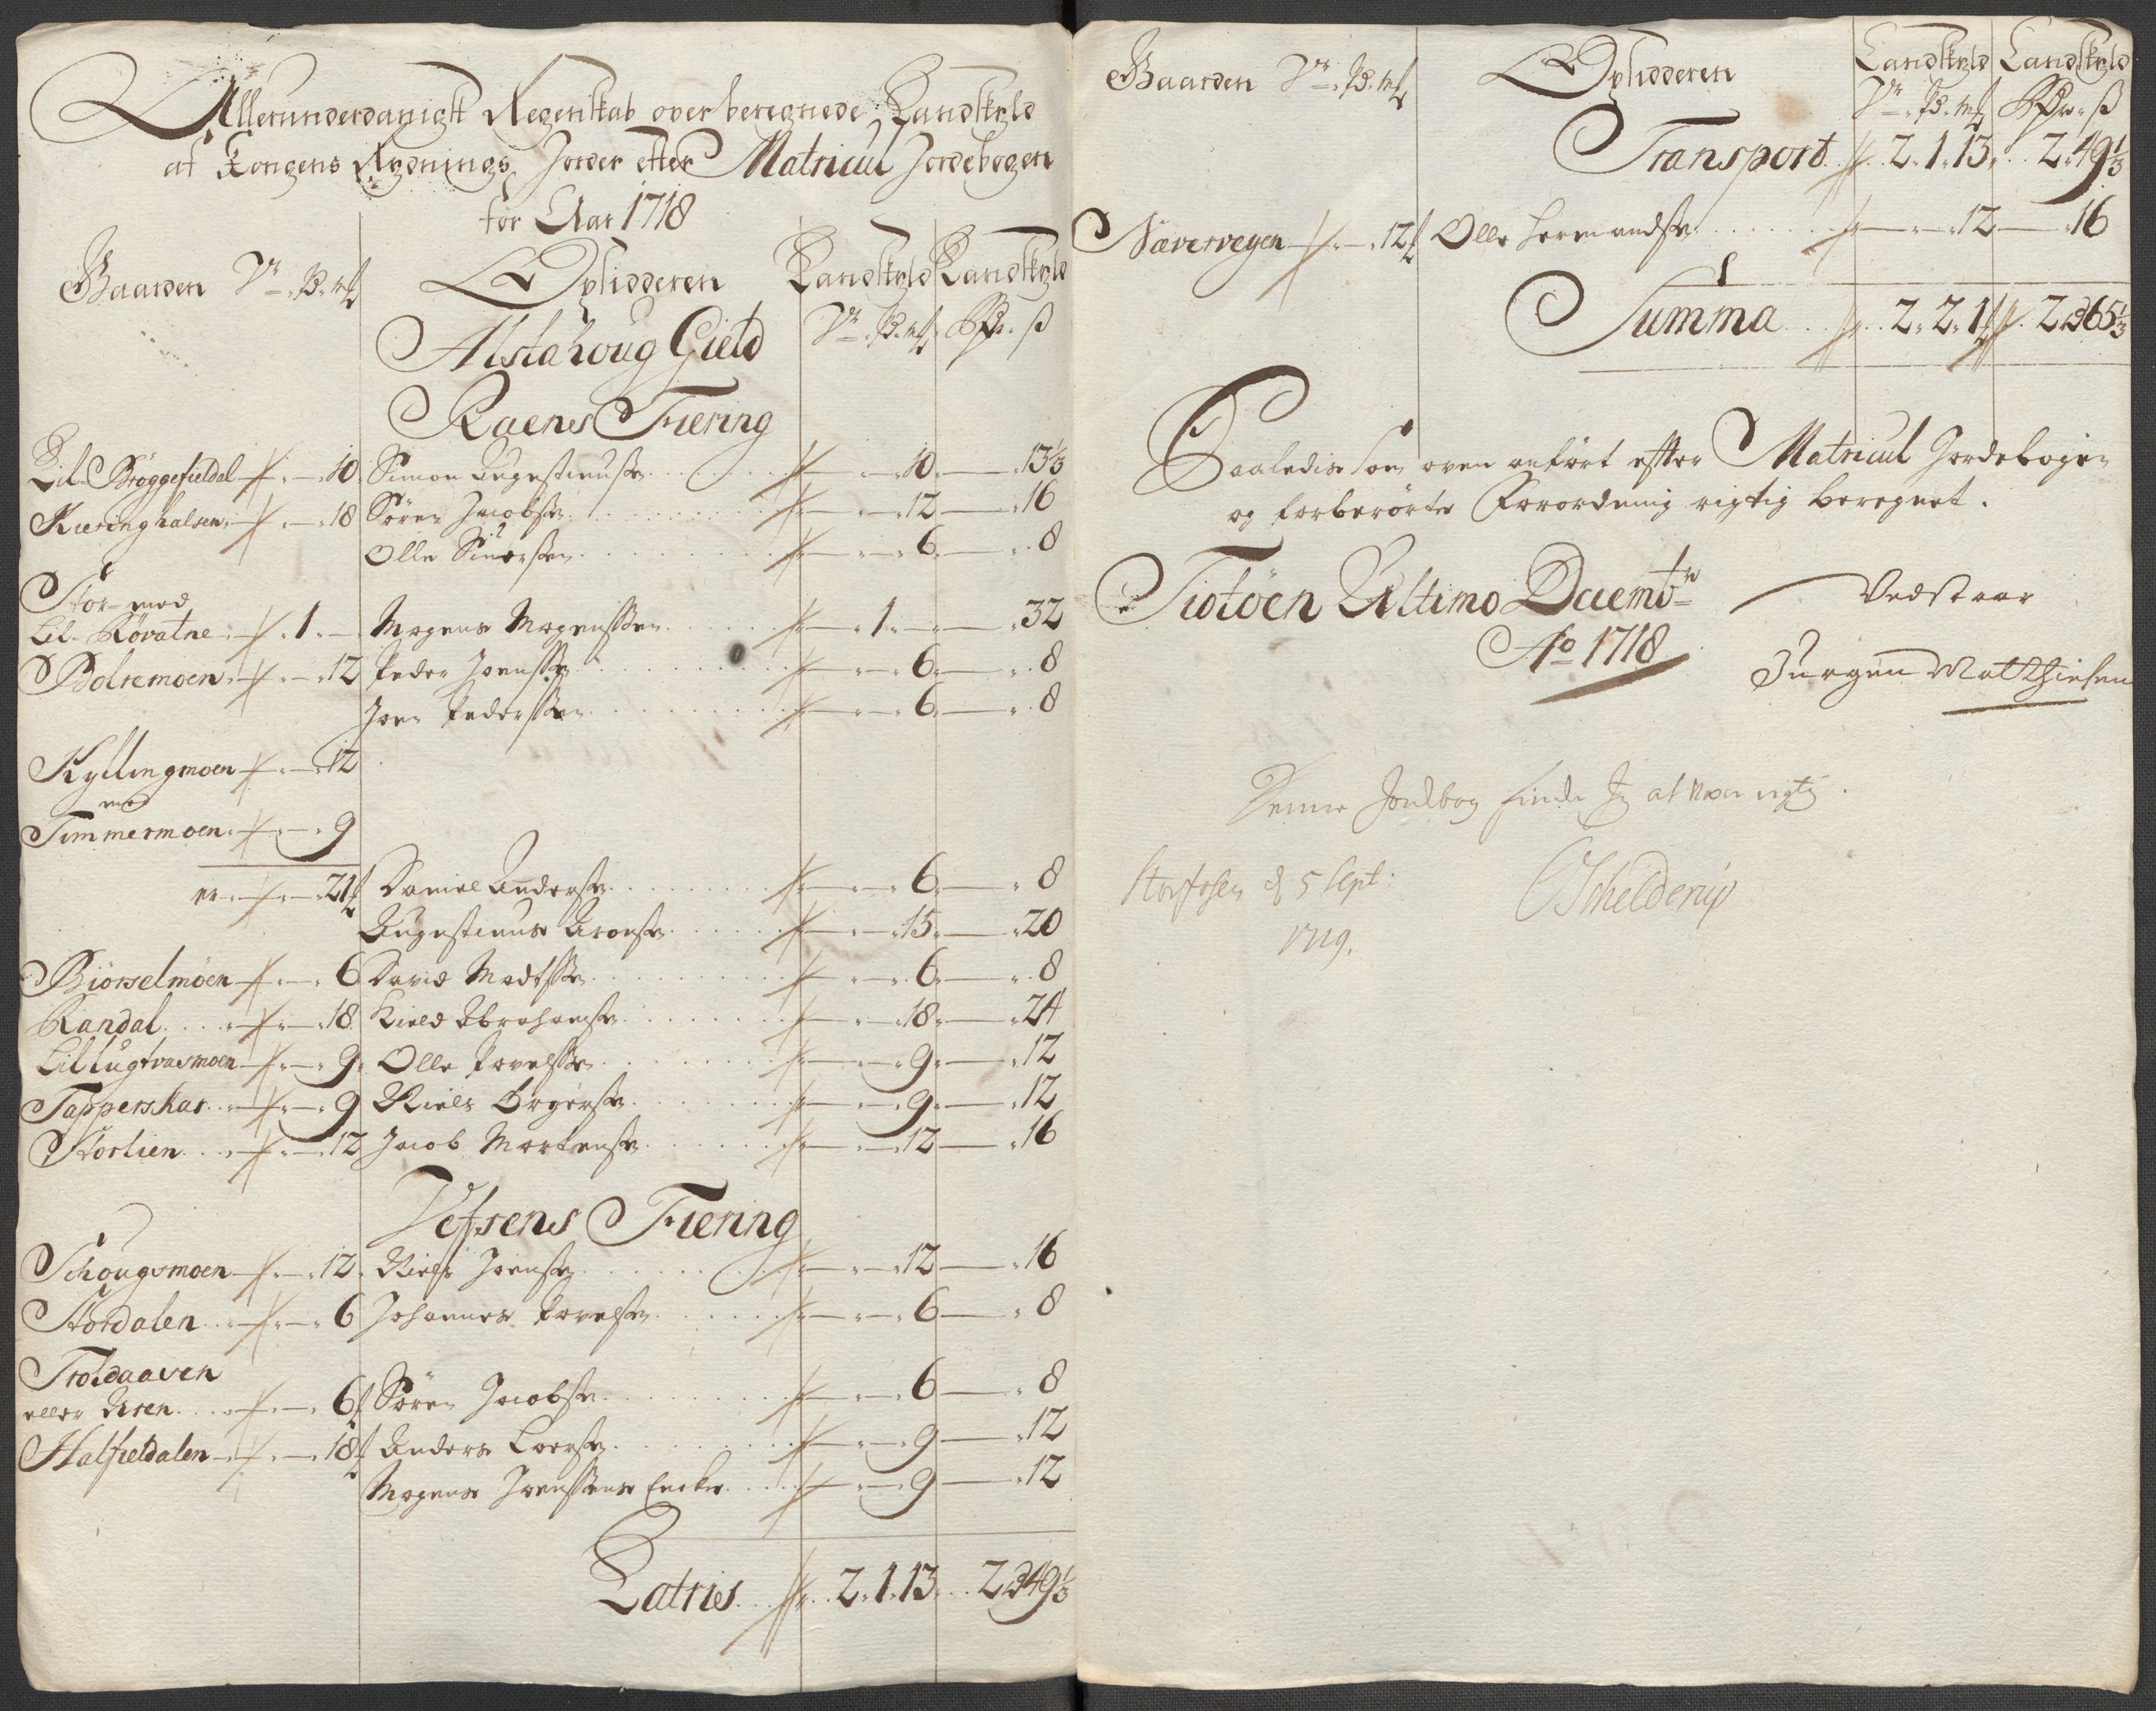 Allerunderdanigst Regenskab over beregnede Landskyld
af Kongens Rydnings Jorder efter Matricul Jordebogen
for Aar 1718
Gaarden V. P. mk Opsidderen Landskyld Landskyld
V. P. mk Rdr. ß
Alstahoug Gield
Raens Fiering
Lil Brøggefieldal 10 Simon Augustinusen 10 13 1/3
Kieringhalsen 18 Søren Jacobsen 12 16
Olle Siversen 6 8
Stor med
Lil Røvatne 1 Mogens Mogenssen 1 32
Bolremoen 12 Peder Joenssen 6 8
Joen Pederssen 6 8
Kyllingmoen 12
med
Timmermoen 9
er 21 Daniel Andersen 6 8
Augustinus Aronsen 15 20
Biørselmoen 6 David Madtssen 6 8
Randal 18 Kield Abrahamsen 18 24
Lillugtvasmoen 9 Olle Povelssen 9 12
Tapperskar 9 NielsØrgersen 9 12
Storlien 12 Jacob Mortensen 12 16
Vefsens Fiering
Schougsmoen 12 Niels Joensen 12 16
Stordalen 6 Johannes Povelsen 6 8
Troldaaven
eller Aren 6 Søren Jacobsen 6 8
Halfieldalen 18 Anders Larsen 9 12
Mogens Joenssens Encke 9 12
Latris 2. 1. 13 2 49 1/3
Gaarden V. P. mk Opsidderen Landskyld Landskyld
V. P. mk Rdr. ß
Transport 2. 1. 13. 2. 49 1/3
Næververgen 12 Olle Hermandsen 12 16
Summa 2. 2. 1 2 65 1/3
Saaledis som oven anført efter Matricul Jordebogen
og forberørte Forordning rigtig beregnet.
Tiøtøen Ultimo Decembr Vedstaar
Ao 1718 Jurgen Matthiesen
Denne Jordbog finder Jeg at være rigtig.
Storfosen d 5 Sept: Schelderup
1719.